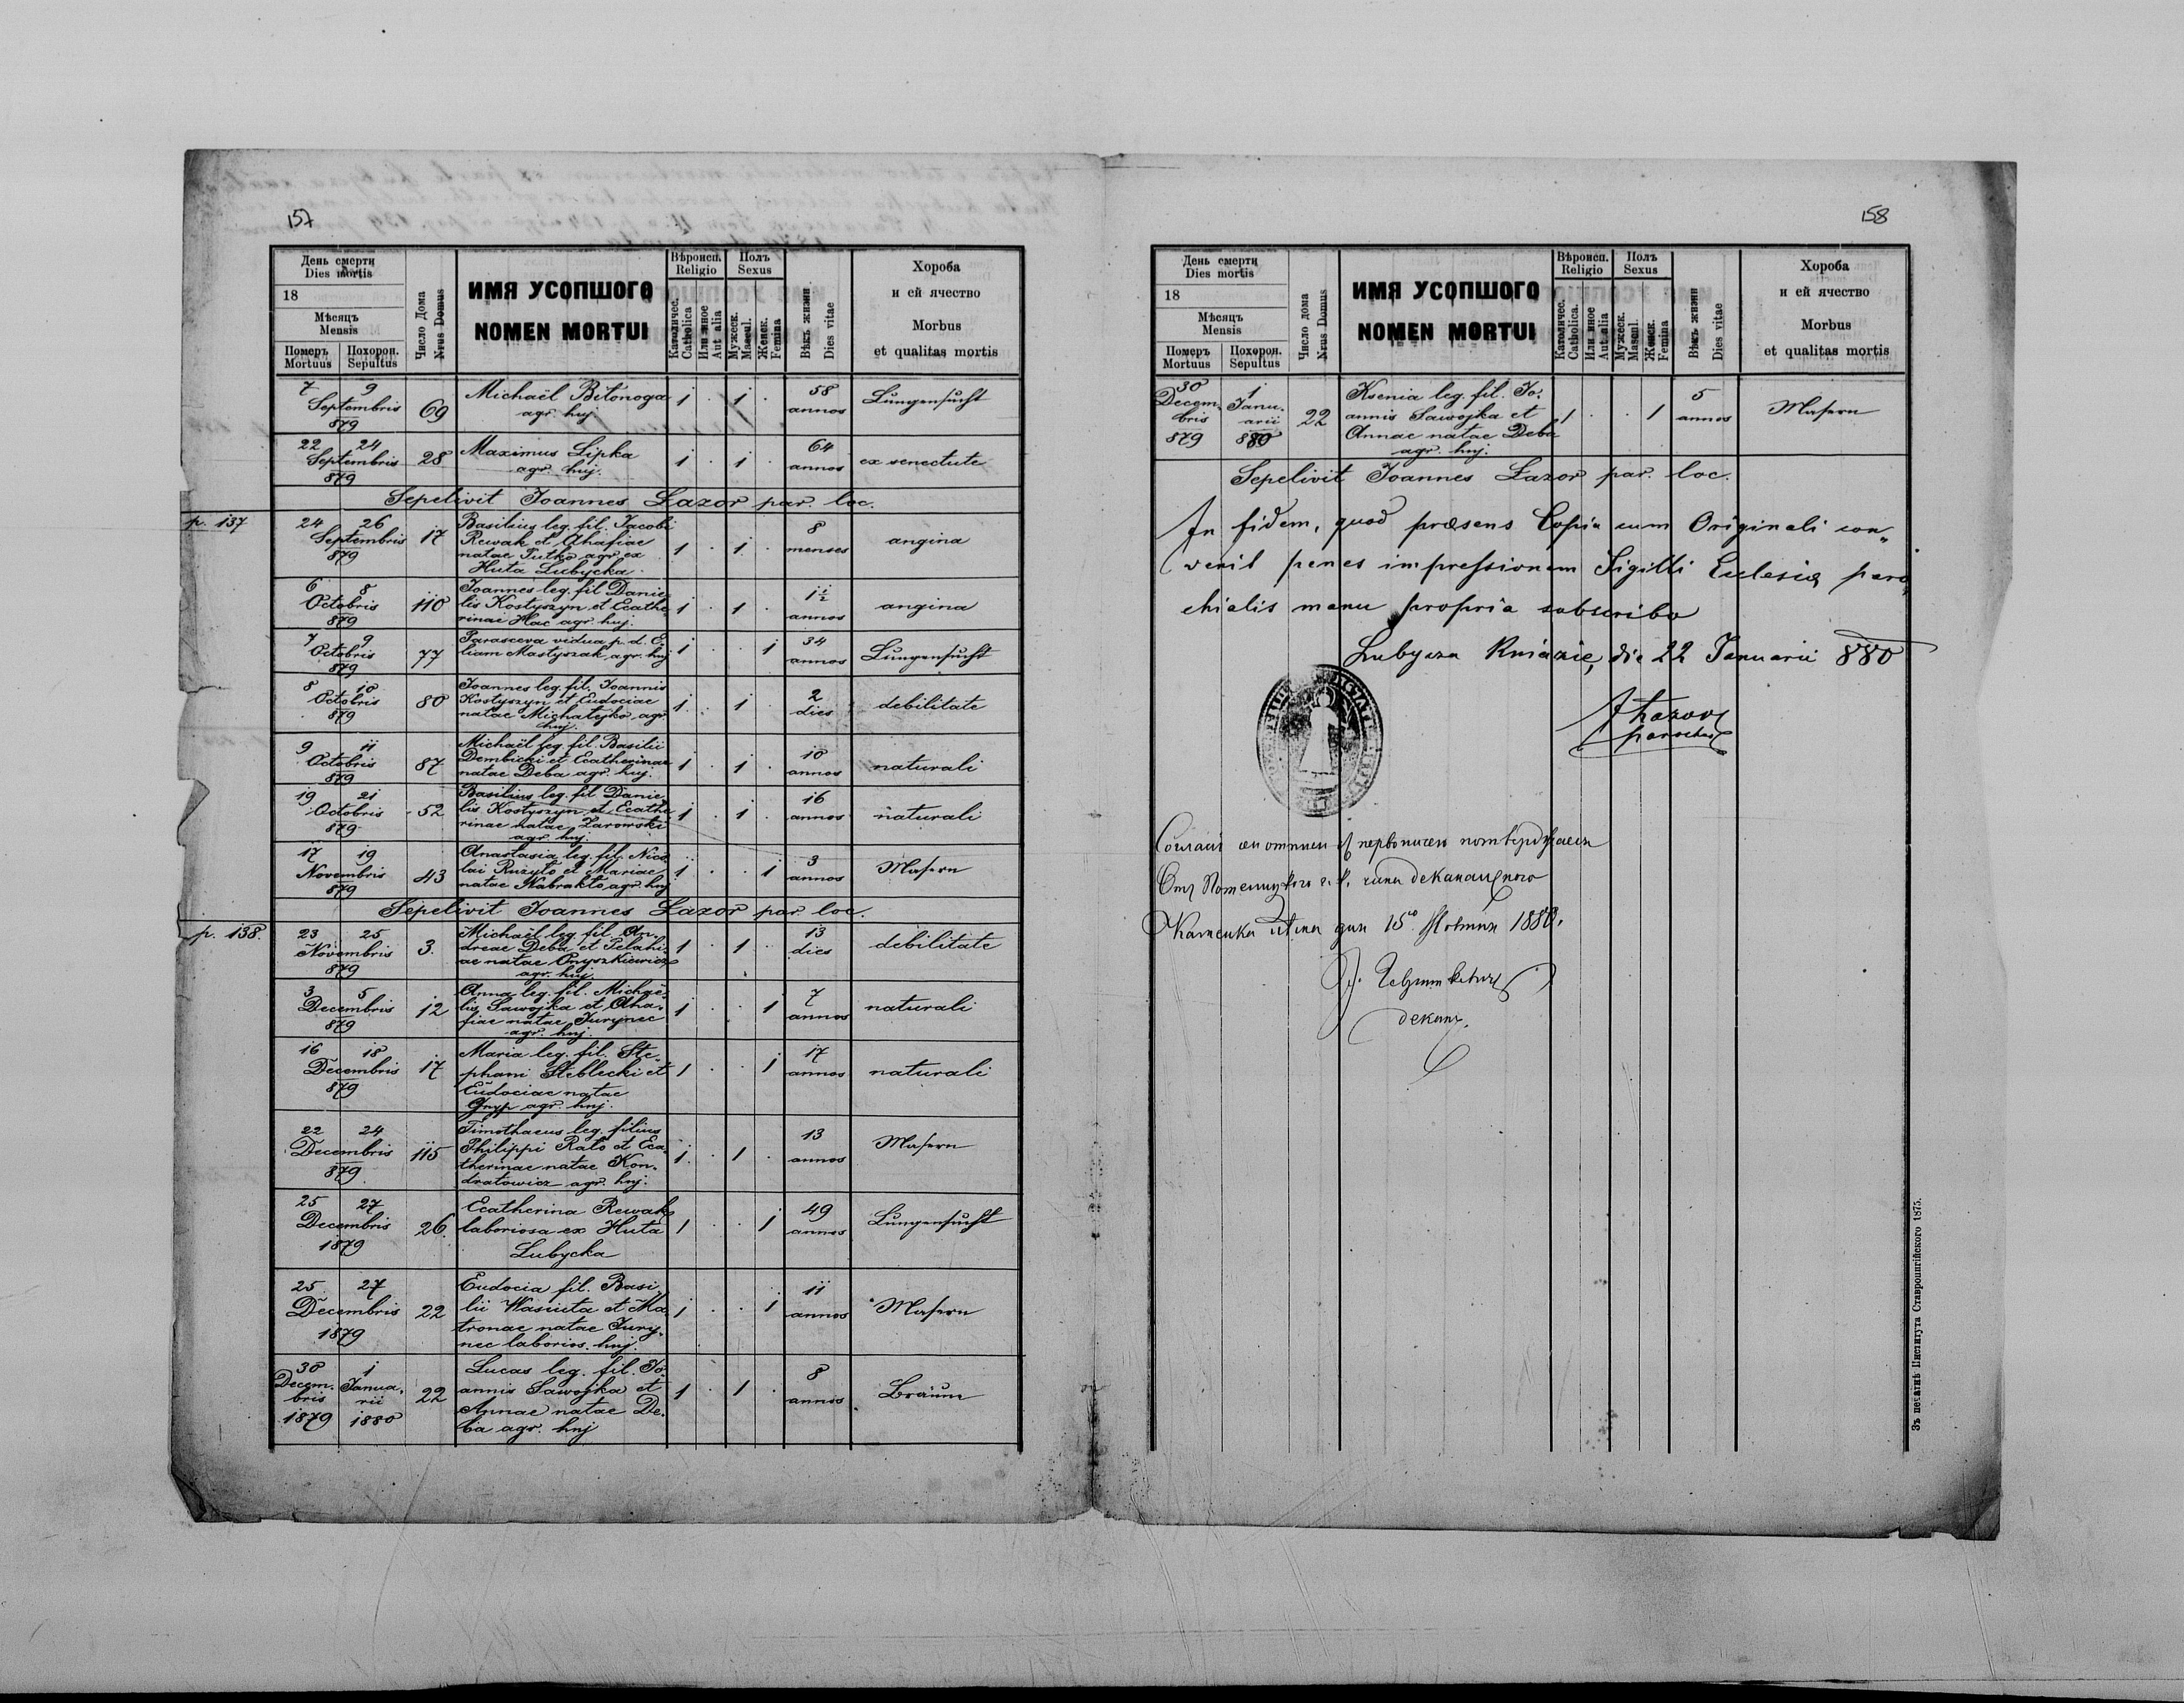 157
День смерти
Dies mortis
18
Мѣсяцъ
Mensis
Померъ Похорон.
Mortuus Sepultus
Число Дома
Nrus Domus
ИМЯ УСОПШОГО
NOMEN MORTUI
Вѣроисп.
Religio
Католичес.
Catholica
Или иное
Aut alia
Полъ
Sexus
Мужеск.
Mascul.
Женск.
Femina
Вѣкъ жизни
Dies vitae
Хороба
и ей ячество
Morbus
et qualitas mortis
7 9
Septembris
879
69
Michaël Bitonoga
agr. huj.
1 . 1 .
58
annos
Lungensucht
22 24
Septembris
879
28
Maximus Lipka
agr. huj.
1 . 1 .
64
annos
ex senectute
Sepelivit Joannes Lazor par. loc.
p. 137
24 26
Septembris
879
17
Basilius leg. fil. Jacobi
Rewak et Ahafiae
natae Tutko agr. ex
Huta Lubycka
1 . 1 .
8
menses
angina
6 8
Octobris
879
110
Joannes leg. fil Danie
lis Kostyszyn et Ecathe
rinae Hac agr. huj.
1 . 1 .
1½
annos
angina
7 9
Octobris
879
77
Parasceva vidua p. d. E
liam Mastyszak agr. huj
1 . . 1
34
annos
Lungensucht
8 10
Octobris
879
80
Joannes leg. fil. Joannis
Kostyszyn et Eudociae
natae Michatejko agr.
huj.
1 . 1 .
2
dies
debilitate
9 11
Octobris
879
87
Michaël leg. fil. Basilii
Dembicki et Ecatherinae
natae Deba agr. huj.
1 . 1 .
10
annos
naturali
19 21
Octobris
879
52
Basilius leg. fil. Danie
lis Kostyszyn et Ecathe
rinae natae Zarowski
agr. huj.
1 . 1 .
16
annos
naturali
17 19
Novembris
879
43
Anastasia leg. fil. Nico
lai Ruzyto et Mariae
natae Kabrakto agr. huj
1 . . 1
3
annos
Masern
Sepelivit Joannes Lazor par. loc.
p. 138.
23 25
Novembris
879
3.
Michaël leg. fil. An.
dreae Deba et Pelahi.
ae natae Onyszkiewicz
agr. huj.
1 . 1 .
13
dies
debilitate
3 5
Decembris
879
12
Anna leg. fil. Michaë
lis Sawojka et Aha.
fiae natae Jurynec
agr. huj.
1 . . 1
7
annos
naturali
16 18
Decembris
879
17
Maria leg. fil. Ste.
phani Steblecki et
Eudociae natae
Gnyp agr. huj.
1 . . 1
17
annos
naturali
22 24
Decembris
879
115
Timothaeus leg. filius
Philippi Rato et Eca
therinae natae Kon.
dratowicz agr. huj.
1 . 1 .
13
annos
Masern
25 27
Decembris
1879
26.
Ecatherina Rewak
laboriosa ex Huta
Lubycka
1 . . 1
49
annos
Lungensucht
25 27
Decembris
1879
22
Eudocia fil. Basi
lii Wasiuta et Ma
tronae natae Jury.
nec laborios. huj.
1 . . 1
11
annos
Masern
30 1
Decem. Janua.
bris rii
1879 1880
22
Lucas leg. fil. Jo
annis Sawojka et
Annae natae De.
ba agr. huj
1 . 1 .
8
annos
Bräune
158
День смерти
Dies mortis
18
Мѣсяцъ
Mensis
Померъ Похорон.
Mortuus Sepultus
Число дома
Nrus Domus
ИМЯ УСОПШОГО
NOMEN MORTUI
Вѣроисп.
Religio
Католичес.
Catholica.
Или иное
Aut alia
Полъ
Sexus
Мужеск.
Mascul.
Женск.
Femina
Вѣкъ жизни
Dies vitae
Хороба
и ей ячество
Morbus
et qualitas mortis
30 1
Decem. Janu.
bris arii
879 880
22
Ksenia leg. fil. Jo.
annis Sawojka et
Annae natae Deba
agr. huj.
1 . . 1
5
annos
Masern
Sepelivit Joannes Lazor par. loc.
In fidem, quod præsens Copia cum Originali con„
venit penes impressionem Sigilli Eclesiæ paro
chialis manu propria subscribo
Lubycza Kniazie, die 22 Januarii 880
J Lazor
parochus
дня 15го 1880.
деканъ.
Зъ печатнѣ Института Ставропигійского 1875.